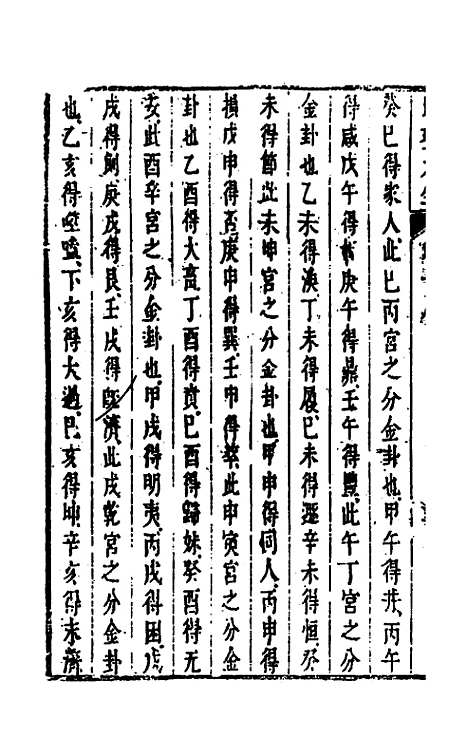 癸巳得家人此巳丙宮之分金卦也甲午得井丙午
得咸戊午得庚午得鼎壬午得豐此午丁宮之分
金卦也乙未得渙丁未得履巳未得遯辛未得恒癸
未得節此未坤宮之分金卦也甲申得同人丙申得
損戊申得否庚申得巽壬申得萃此申寅宮之分金
卦也乙酉得大畜丁酉得賁巳酉得歸妹癸酉得无
妄此酉辛宮之分金卦也甲戌得明夷丙戌得困戊
戌得剝庚戌得艮壬戌得旣濟此戌乾宮之分金卦
也乙亥得噬嗑下亥得大過巳亥得坤辛亥得未濟